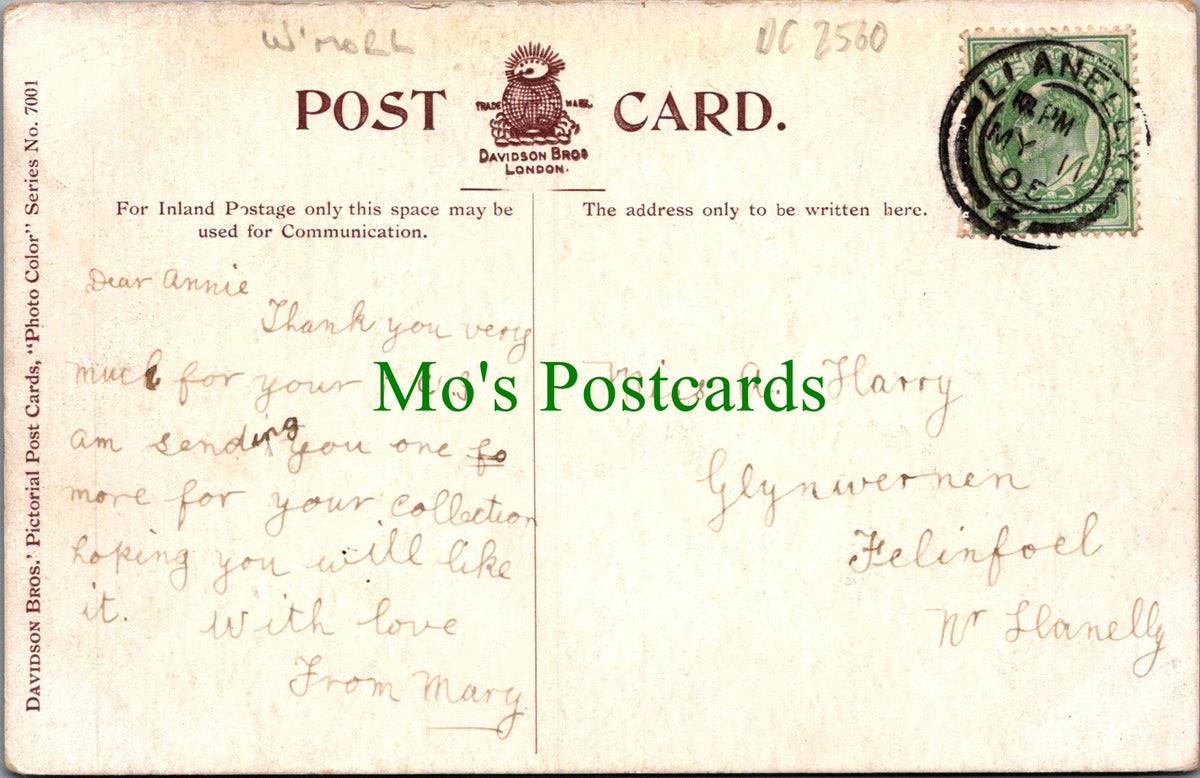 W'MORL
DC 2560
POST CARD.
TRADE MARK.
DAVIDSON BROS
LONDON.
For Inland Postage only this space may be
used for Communication.
The address only to be written here.
LLANELLY
PM
MY 11
DAVIDSON BROS.' Pictorial Post Cards, "Photo Color" Series No. 7001
Dear Annie
Thank you very
much for your
am sending you one fo
more for your collection
hoping you will like
it. With love
From Mary
Miss A. Harry
Glynwernen
Felinfoel
Nr Llanelly
Mo's Postcards